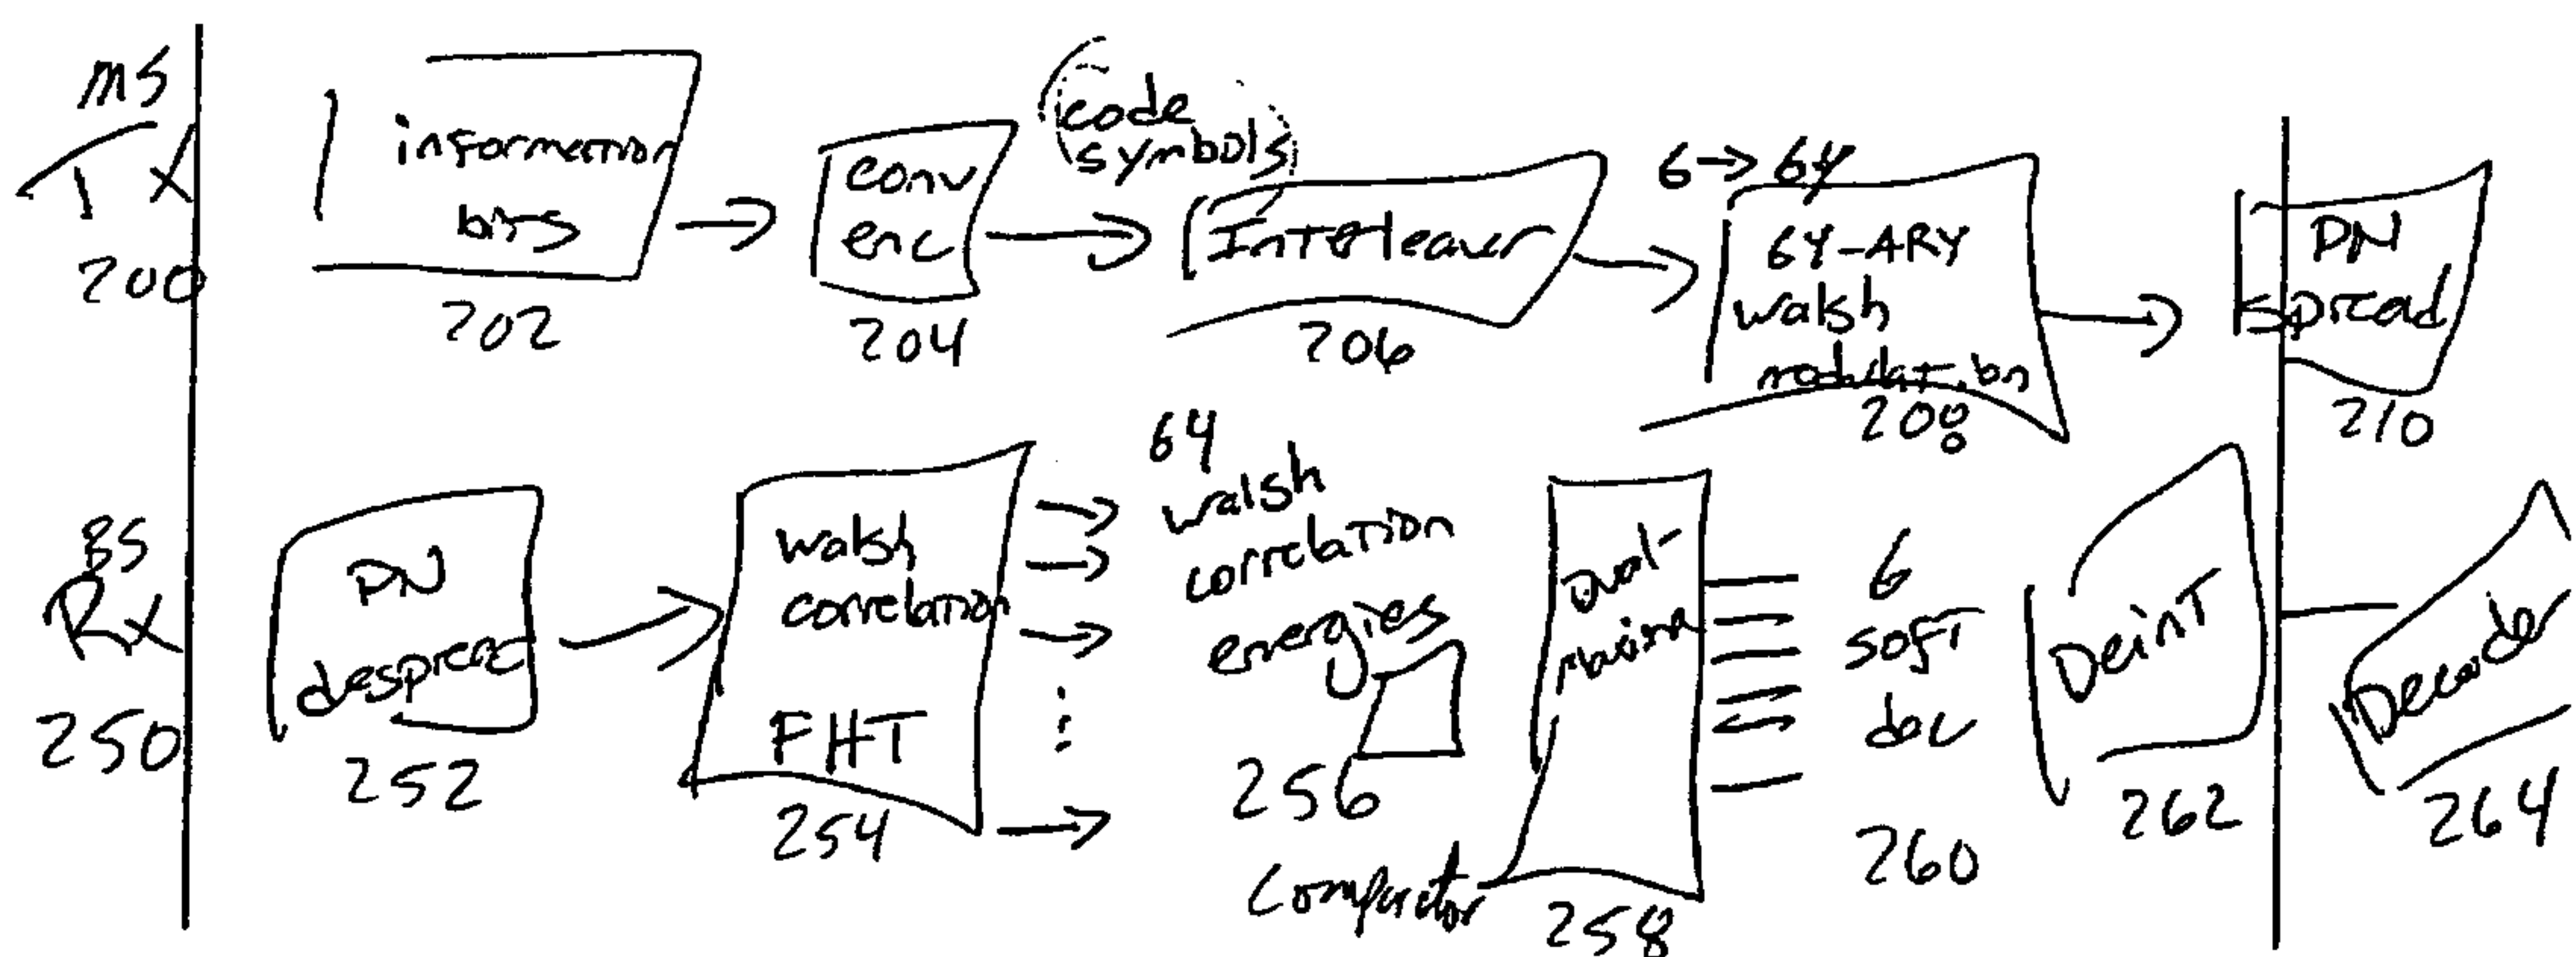 MS
TX
200
information
bits
202
conv
enc
204
code
symbols
Interleaver
206
6→64
64-ARY
walsh
modulation
208
PN
spread
210
BS
Rx
250
PN
despread
252
walsh
correlation
FHT
254
64
walsh
correlation
energies
256
Comparator
Dual-
maxima
258
6
SOFT
dec
260
DeinT
262
Decoder
264